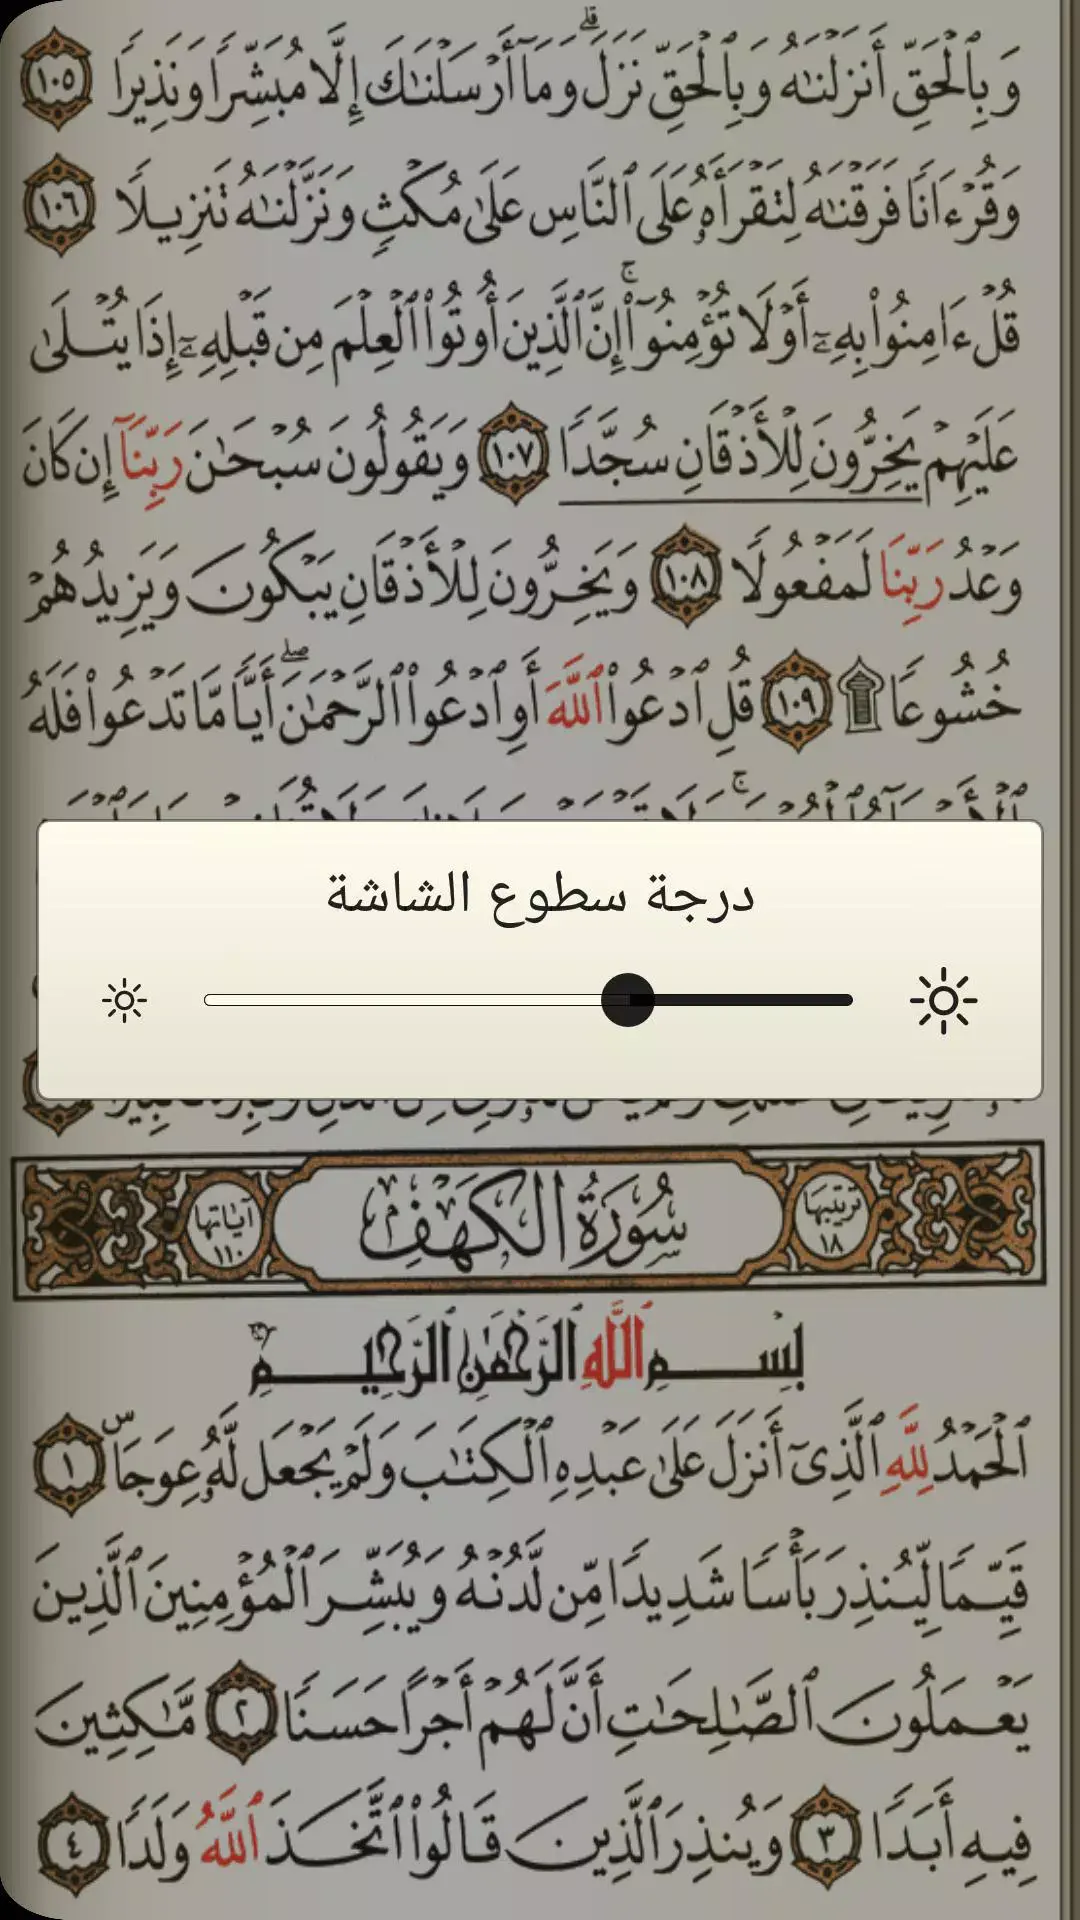 وَبِٱلْحَقِّ أَنزَلْنَٰهُ وَبِٱلْحَقِّ نَزَلَ ۗ وَمَآ أَرْسَلْنَٰكَ إِلَّا مُبَشِّرًا وَنَذِيرًا ١٠٥
وَقُرْءَانًا فَرَقْنَٰهُ لِتَقْرَأَهُۥ عَلَى ٱلنَّاسِ عَلَىٰ مُكْثٍ وَنَزَّلْنَٰهُ تَنزِيلًا ١٠٦
قُلْ ءَامِنُوا۟ بِهِۦٓ أَوْ لَا تُؤْمِنُوٓا۟ ۚ إِنَّ ٱلَّذِينَ أُوتُوا۟ ٱلْعِلْمَ مِن قَبْلِهِۦٓ إِذَا يُتْلَىٰ
عَلَيْهِمْ يَخِرُّونَ لِلْأَذْقَانِ سُجَّدًا ١٠٧ وَيَقُولُونَ سُبْحَٰنَ رَبِّنَآ إِن كَانَ
وَعْدُ رَبِّنَا لَمَفْعُولًا ١٠٨ وَيَخِرُّونَ لِلْأَذْقَانِ يَبْكُونَ وَيَزِيدُهُمْ
خُشُوعًا ۩ ١٠٩ قُلِ ٱدْعُوا۟ ٱللَّهَ أَوِ ٱدْعُوا۟ ٱلرَّحْمَٰنَ ۖ أَيًّا مَّا تَدْعُوا۟ فَلَهُ
درجة سطوع الشاشة
ترتيبها ١٨ سُورَةُ الكَهْف آياتها ١١٠
بِسْمِ ٱللَّهِ ٱلرَّحْمَٰنِ ٱلرَّحِيمِ
ٱلْحَمْدُ لِلَّهِ ٱلَّذِىٓ أَنزَلَ عَلَىٰ عَبْدِهِ ٱلْكِتَٰبَ وَلَمْ يَجْعَل لَّهُۥ عِوَجَا ۜ ١
قَيِّمًا لِّيُنذِرَ بَأْسًا شَدِيدًا مِّن لَّدُنْهُ وَيُبَشِّرَ ٱلْمُؤْمِنِينَ ٱلَّذِينَ
يَعْمَلُونَ ٱلصَّٰلِحَٰتِ أَنَّ لَهُمْ أَجْرًا حَسَنًا ٢ مَّٰكِثِينَ
فِيهِ أَبَدًا ٣ وَيُنذِرَ ٱلَّذِينَ قَالُوا۟ ٱتَّخَذَ ٱللَّهُ وَلَدًا ٤